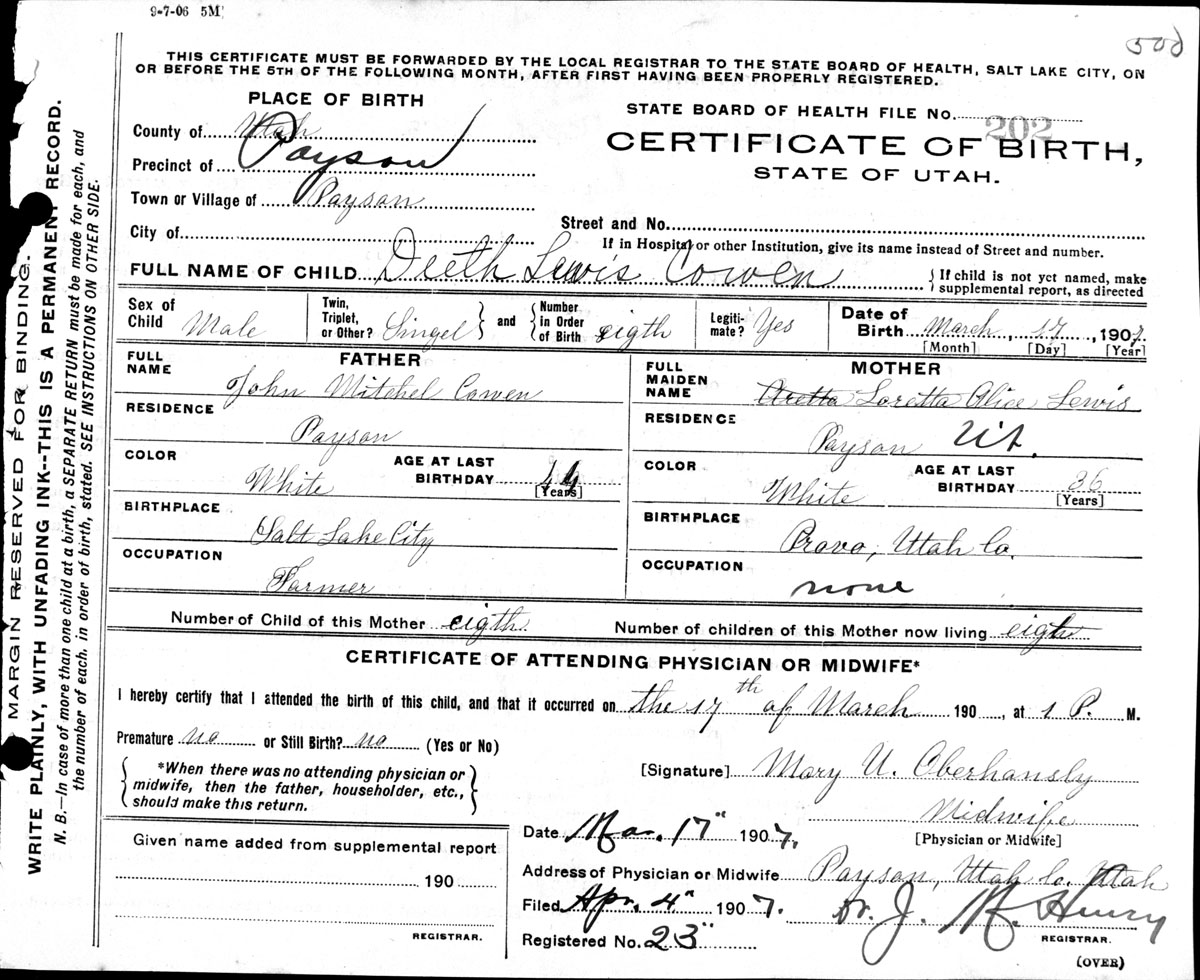 9-7-06 5M
500
THIS CERTIFICATE MUST BE FORWARDED BY THE LOCAL REGISTRAR TO THE STATE BOARD OF HEALTH, SALT LAKE CITY, ON
OR BEFORE THE 5TH OF THE FOLLOWING MONTH, AFTER FIRST HAVING BEEN PROPERLY REGISTERED.
PLACE OF BIRTH
County of Utah
Precinct of Payson
Town or Village of Payson
City of
STATE BOARD OF HEALTH FILE No. 202
CERTIFICATE OF BIRTH,
STATE OF UTAH.
Street and No.
If in Hospital or other Institution, give its name instead of Street and number.
FULL NAME OF CHILD Deeth Lewis Cowen { If child is not yet named, make supplemental report, as directed
Sex of Child Male Twin, Triplet, or Other? Singel } and { Number in Order of Birth eigth Legitimate? Yes Date of Birth March 17, 1907.
[Month] [Day] [Year]
FATHER
FULL NAME John Mitchel Cowen
RESIDENCE Payson
COLOR White AGE AT LAST BIRTHDAY 44 [Years]
BIRTHPLACE Salt Lake City
OCCUPATION Farmer
MOTHER
FULL MAIDEN NAME Aretta Loretta Alice Lewis
RESIDENCE Payson Ut.
COLOR White AGE AT LAST BIRTHDAY 36 [Years]
BIRTHPLACE Provo, Utah Co.
OCCUPATION none
Number of Child of this Mother eigth Number of children of this Mother now living eigth
CERTIFICATE OF ATTENDING PHYSICIAN OR MIDWIFE*
I hereby certify that I attended the birth of this child, and that it occurred on the 17th of March 190 , at 1 P. M.
Premature no or Still Birth? no (Yes or No)
{ *When there was no attending physician or
midwife, then the father, householder, etc.,
should make this return. }
[Signature] Mary U. Oberhansly
Midwife
[Physician or Midwife]
Given name added from supplemental report
190
REGISTRAR.
Date Mar. 17" 1907.
Address of Physician or Midwife Payson, Utah Co. Utah
Filed Apr. 4" 1907. Dr. J. M. Henry
REGISTRAR.
Registered No. 23"
(OVER)
MARGIN RESERVED FOR BINDING.
WRITE PLAINLY, WITH UNFADING INK--THIS IS A PERMANENT RECORD.
N. B.—In case of more than one child at a birth, a SEPARATE RETURN must be made for each, and
the number of each, in order of birth, stated. SEE INSTRUCTIONS ON OTHER SIDE.